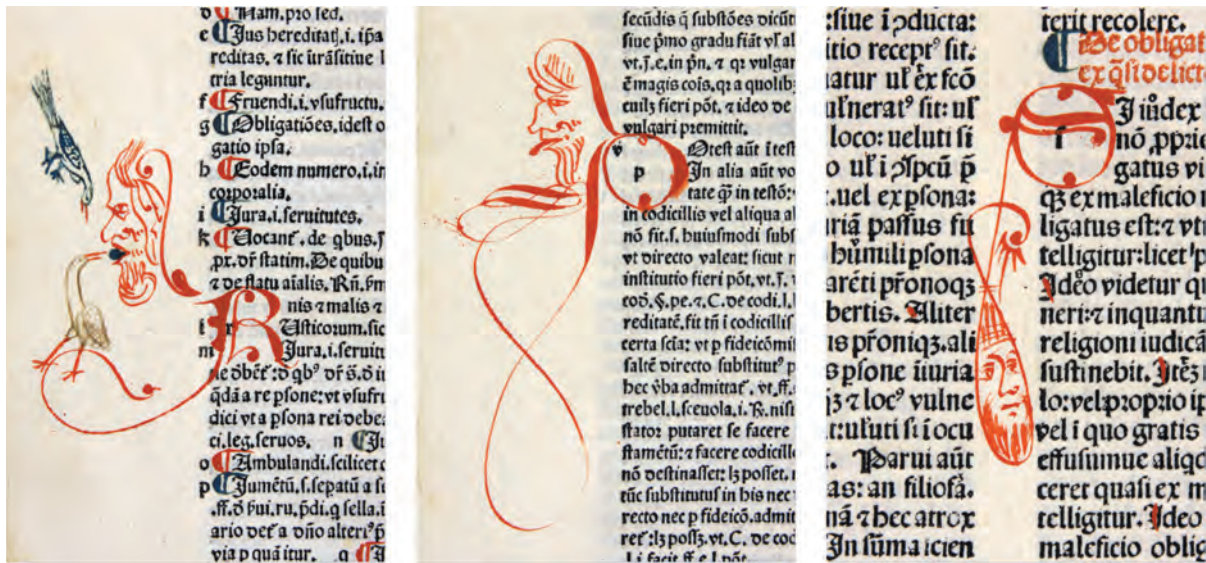 Nam. pro sed.
e Jus hereditatꝭ. i. ip̄a
reditas. ⁊ sic
tria leguntur.
f Fruendi. i. vsufructu.
g Obligatiōes. idest o
gatio ipsa.
h Eodem numero. i. in
corporalia.
i Jura. i. seruitutes.
k Uocant᷑. de qbus. J
p̲x. dr̄ statim. De quibu
⁊ de statu aīalis. Rn̄.
R
nis ⁊ malis ⁊
Usticorum. sic
m Jura. i. seruitu
qdā a re psone: vt vsufru
dici vt a psona rei debe
ci. leg. seruos. n Ju
o Ambulandi. scilicet c
p Jumētū. s.
.ff. ð
ario vet̄ a dn̄o alteriꝰ p
via p quā itur. q J
secūdis q̄ substōes dicūt
siue pͥmo gradu fiāt vl̓ al
vt. j. e. in pn̄. ⁊ qꝛ vulgar
ē magis cōis. qꝛ a quolibꝫ
cuilꝫ fieri pōt. ⁊ ideo de
vulgari premittit.
v
p
Otest aūt i test
In alia aūt vo
tate q̄ꝫ in testō: v
in codicillis vel aliqua al
nō fit. s. huiusmodi subs
vt directo valeat: sicut n
institutio fieri pōt. vt. J.
cod. §. pe. ⁊. C. de codi. l.
reditatē. fit tn̄ i codicillis
certa scīa: vt p fideicōmi
saltē directo substitutꝰ p
hec v̄ba admittat᷑. vt. ff.
trebel. l. sceuola. i. R. nisi
stator putaret se facere
stamētū: ⁊ facere codicill
nō destinasset: lꝫ posset. n
tūc substitutus in his nec
recto nec p fideicō. admit
ret᷑: lꝫ possꝫ. vt. C. de cod
l. i. facit ff. e. l. pōt.
:siue i ꝓducta:
itio receptꝰ sit.
atur ul̓ ex fcō
ulneratꝰ sit: ul̓
loco: ueluti si
o ul̓ i ꝯspcū p̄
:.uel ex psona:
iriā passus su
hūmili psona
arēti pr̄onoqꝫ
bertis. Aliter
is pr̄oniqꝫ. ali
s psone iiuria
ꝫ ⁊ locꝰ vulne
t: ul̓uti si i ocu
. Parui aūt
as: an filiofa.
nā ⁊ hec atrox
In sūma scien
terit recolere.
De obligat
ex q̄si delicto
f
I iudex
nō ꝓprie
gatus vi
qꝫ ex maleficio
ligatus est: ⁊ vtr
telligitur: licet p
Ideo videtur qu
neri: ⁊ inquantu
religioni iudicā
sustinebit. Itē
lo: vel proprio ip
vel i quo gratis
effusumue aliqd
ceret quasi ex m
telligitur. Ideo
maleficio oblig